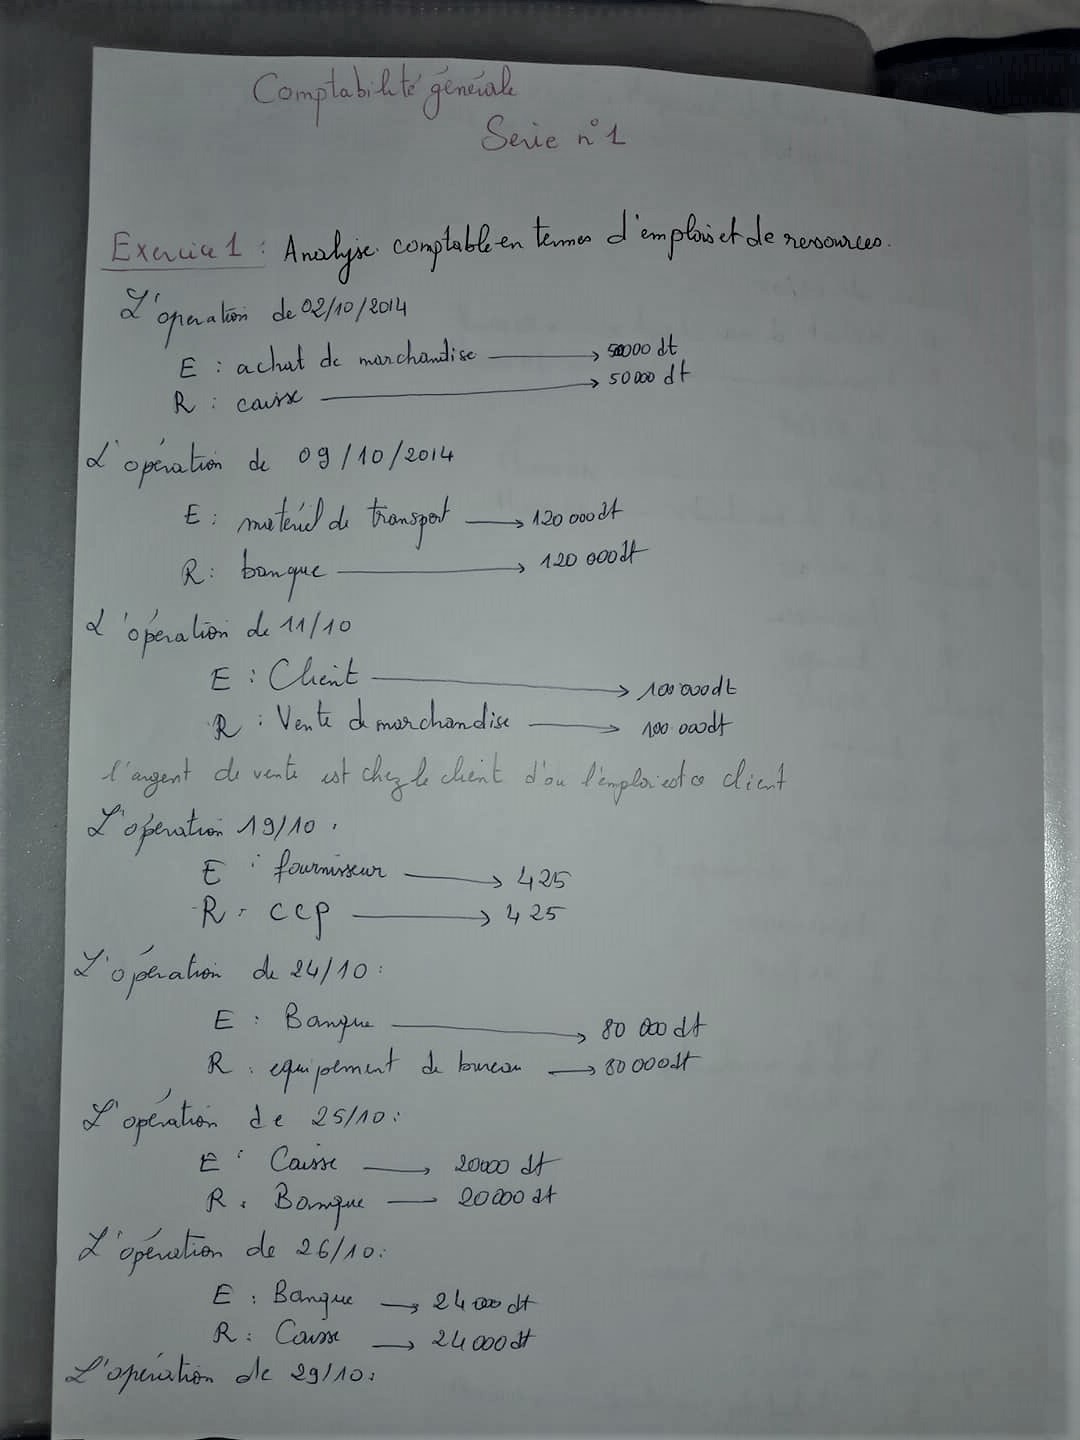 Comptabilité générale
Serie n°1
Exercice 1 : Analyse comptable en termes d'emplois et de ressources.
L'operation de 02/10/2014
E : achat de marchandise → 50000 dt
R : caisse → 50000 dt
L'opération de 09/10/2014
E : matériel de transport → 120 000 dt
R : banque → 120 000 dt
L'opération de 11/10
E : Client → 100 000 dt
R : Vente de marchandise → 100 000 dt
l'argent de vente est chez le client d'ou l'emploi est client
L'opération 19/10 :
E : fournisseur → 425
R : CCP → 425
L'opération de 24/10 :
E : Banque → 80 000 dt
R : equipement de bureau → 80 000 dt
L'opération de 25/10 :
E : Caisse → 20000 dt
R : Banque — 20000 dt
L'opération de 26/10 :
E : Banque → 24 000 dt
R : Caisse → 24 000 dt
L'opération de 29/10 :